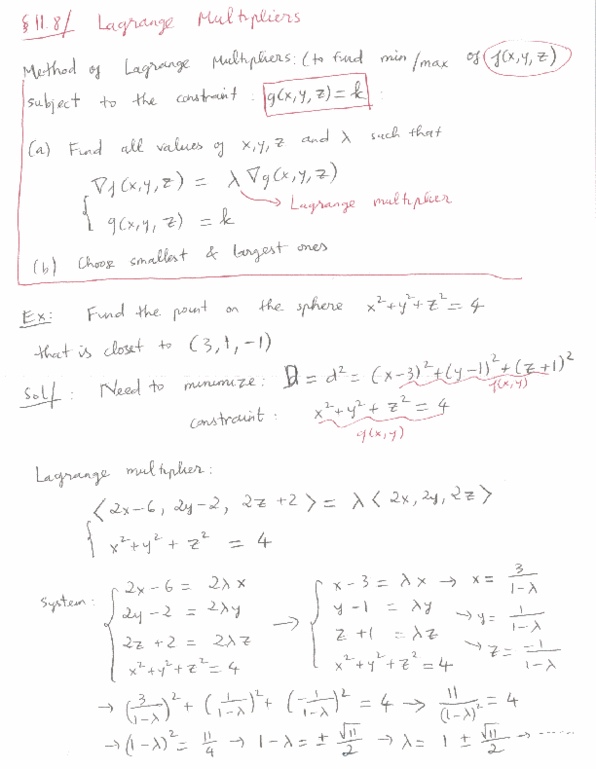 §11.8/ Lagrange Multipliers
Method of Lagrange Multipliers: (to find min/max of f(x,y,z)
subject to the constraint: g(x,y,z)=k :
(a) Find all values of x,y,z and λ such that
∇f(x,y,z) = λ∇g(x,y,z)
g(x,y,z) = k
Lagrange multiplier
(b) Choose smallest & largest ones
Ex: Find the point on the sphere x²+y²+z²=4
that is closet to (3,1,-1)
Sol/: Need to minimize: D = d² = (x-3)²+(y-1)²+(z+1)²
f(x,y)
constraint: x²+y²+z²=4
g(x,y)
Lagrange multiplier:
⟨2x-6, 2y-2, 2z+2⟩ = λ⟨2x,2y,2z⟩
x²+y²+z² = 4
System: 2x-6 = 2λx → x-3 = λx → x = 3/(1-λ)
2y-2 = 2λy y-1 = λy → y = 1/(1-λ)
2z+2 = 2λz z+1 = λz → z = -1/(1-λ)
x²+y²+z²=4 x²+y²+z²=4
→ (3/(1-λ))² + (1/(1-λ))² + (-1/(1-λ))² = 4 → 11/(1-λ)² = 4
→ (1-λ)² = 11/4 → 1-λ = ± √11/2 → λ = 1 ± √11/2 → ......